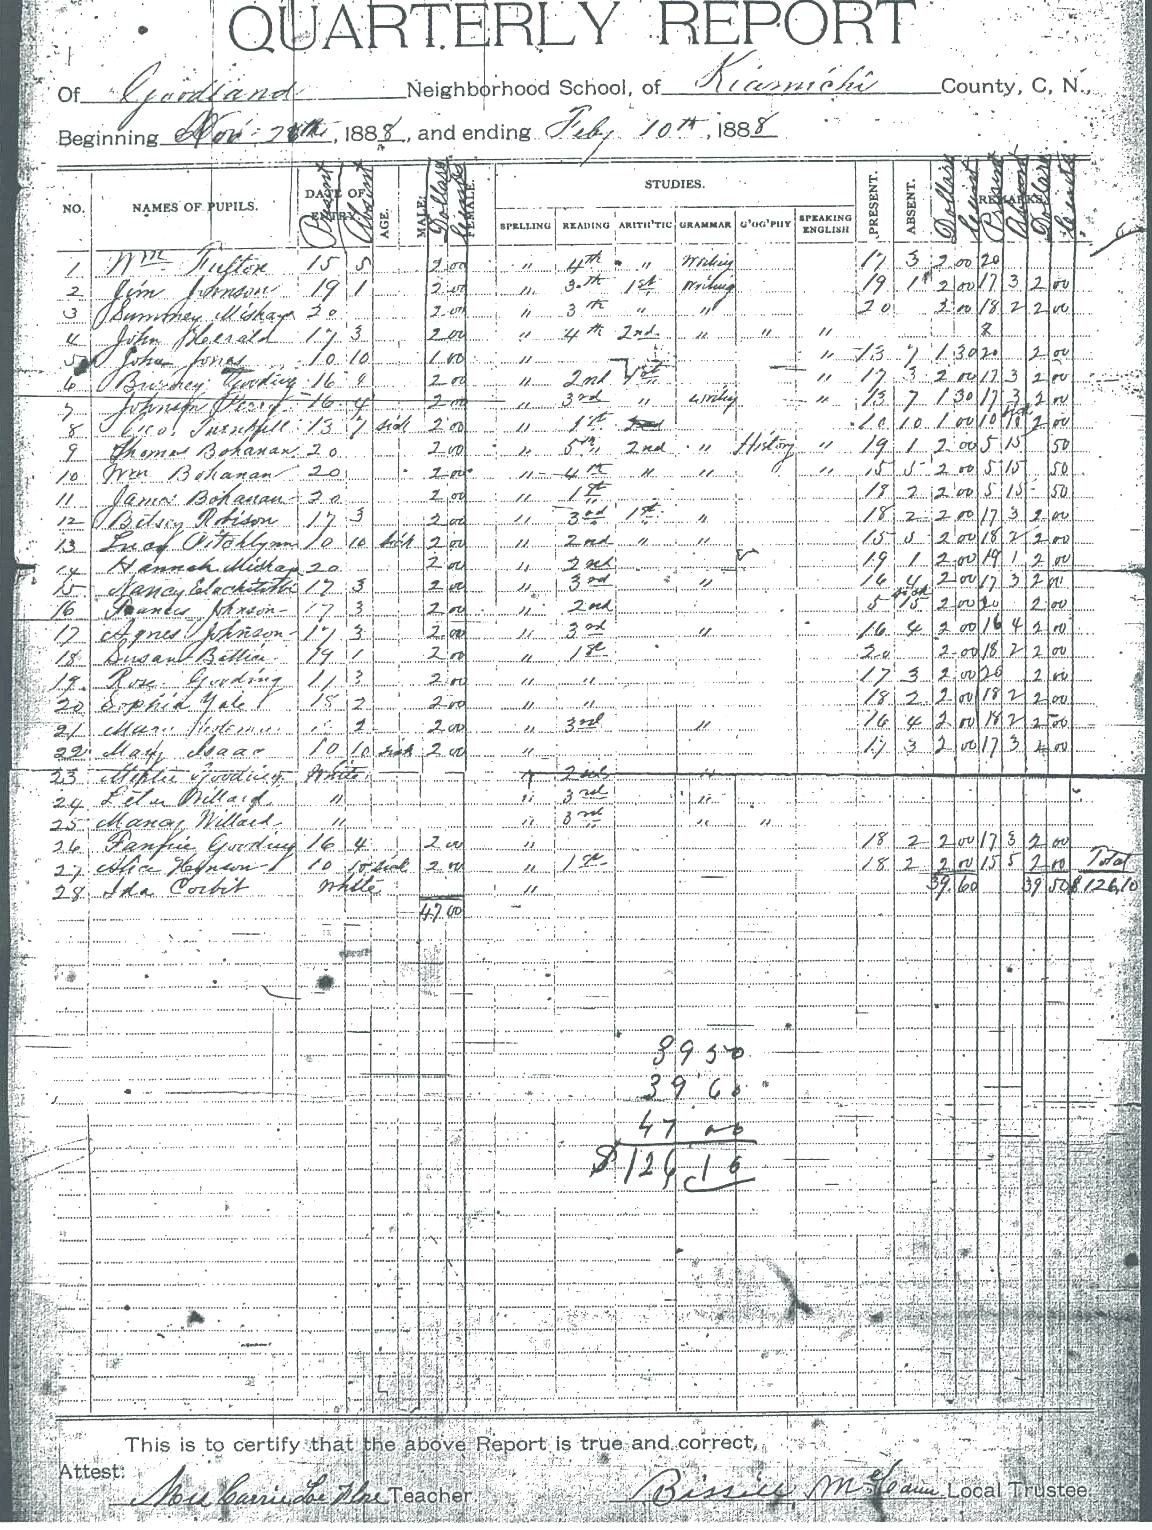 QUARTERLY REPORT
Of Goodland Neighborhood School, of Kiamichi County, C, N.,
Beginning Nov. 28th, 1888, and ending Feby 10th, 1888
NO. NAMES OF PUPILS. DATE OF ENTRY. Present Absent AGE. MALE. Dollars Cents FEMALE. STUDIES. PRESENT. ABSENT. Dollars Cents Present REMARKS. Absent Dollars Cents
SPELLING READING ARITH'TIC GRAMMAR G'OG'PHY SPEAKING ENGLISH
1 Wm Fulton 15 5 2 00 " 4th " Writing 17 3 2 00 20
2 Jim Johnson 19 1 2 00 " 3th 1st Writing 19 1 2 00 17 3 2 00
3 20 2 00 " 3th " " 20 2 00 18 2 2 00
4 John 17 3 2 00 " 4th 2nd " " "
5 John Jones 10 10 1 00 " " 13 7 1 30 20 2 00
6 Gooding 16 4 2 00 " 2nd 1st " 17 3 2 00 17 3 2 00
7 Johnson Perry 16 4 2 00 " 3rd " Writing " 13 7 1 30 17 3 2 00
8 Turnbull 13 7 sick 2 00 " 1st 10 10 1 00 10 2 00
9 Thomas Bohanan 20 2 00 " 5th 2nd " History 19 1 2 00 5 15 50
10 Wm Bohanan 20 2 00 " 4th " " " 15 5 2 00 5 15 50
11 James Bohanan 20 2 00 " 1st 18 2 2 00 5 15 50
12 Betsey Robison 17 3 2 00 " 3rd 1st " 18 2 2 00 17 3 2 00
13 Lucy Pitchlynn 10 10 sick 2 00 " 2nd " " 15 5 2 00 18 2 2 00
14 Hannah 20 2 00 " 2nd 19 1 2 00 19 1 2 00
15 Nancy 17 3 2 00 " 3rd " 16 4 2 00 17 3 2 00
16 Francis Johnson 17 3 2 00 " 2nd 5 15 sick 2 00 20 2 00
17 Agnes Johnson 17 3 2 00 " 3rd " 16 4 2 00 16 4 2 00
18 Susan Battice 19 1 2 00 " 1st 20 2 00 18 2 2 00
19 Rose Gooding 17 3 2 00 " " 17 3 2 00 20 2 00
20 Sophia Yale 18 2 2 00 " " 18 2 2 00 18 2 2 00
21 2 2 00 " 3rd " 16 4 2 00 18 2 2 00
22 Mary Isaac 10 10 sick 2 00 " 17 3 2 00 17 3 2 00
23 Gooding White " 2nd "
24 Willard " " 3rd "
25 Nancy Willard " " 3rd " "
26 Fannie Gooding 16 4 2 00 " 18 2 2 00 17 3 2 00
27 Alice 10 10 sick 2 00 " 1st 18 2 2 00 15 5 2 00 Total
28 Ida Corbit White " 39 60 39 50 $126,10
47 00
39 50
39 60
47 00
$126 10
This is to certify that the above Report is true and correct,
Attest:
Mrs Carrie LeFlore Teacher Bissie McCann Local Trustee.